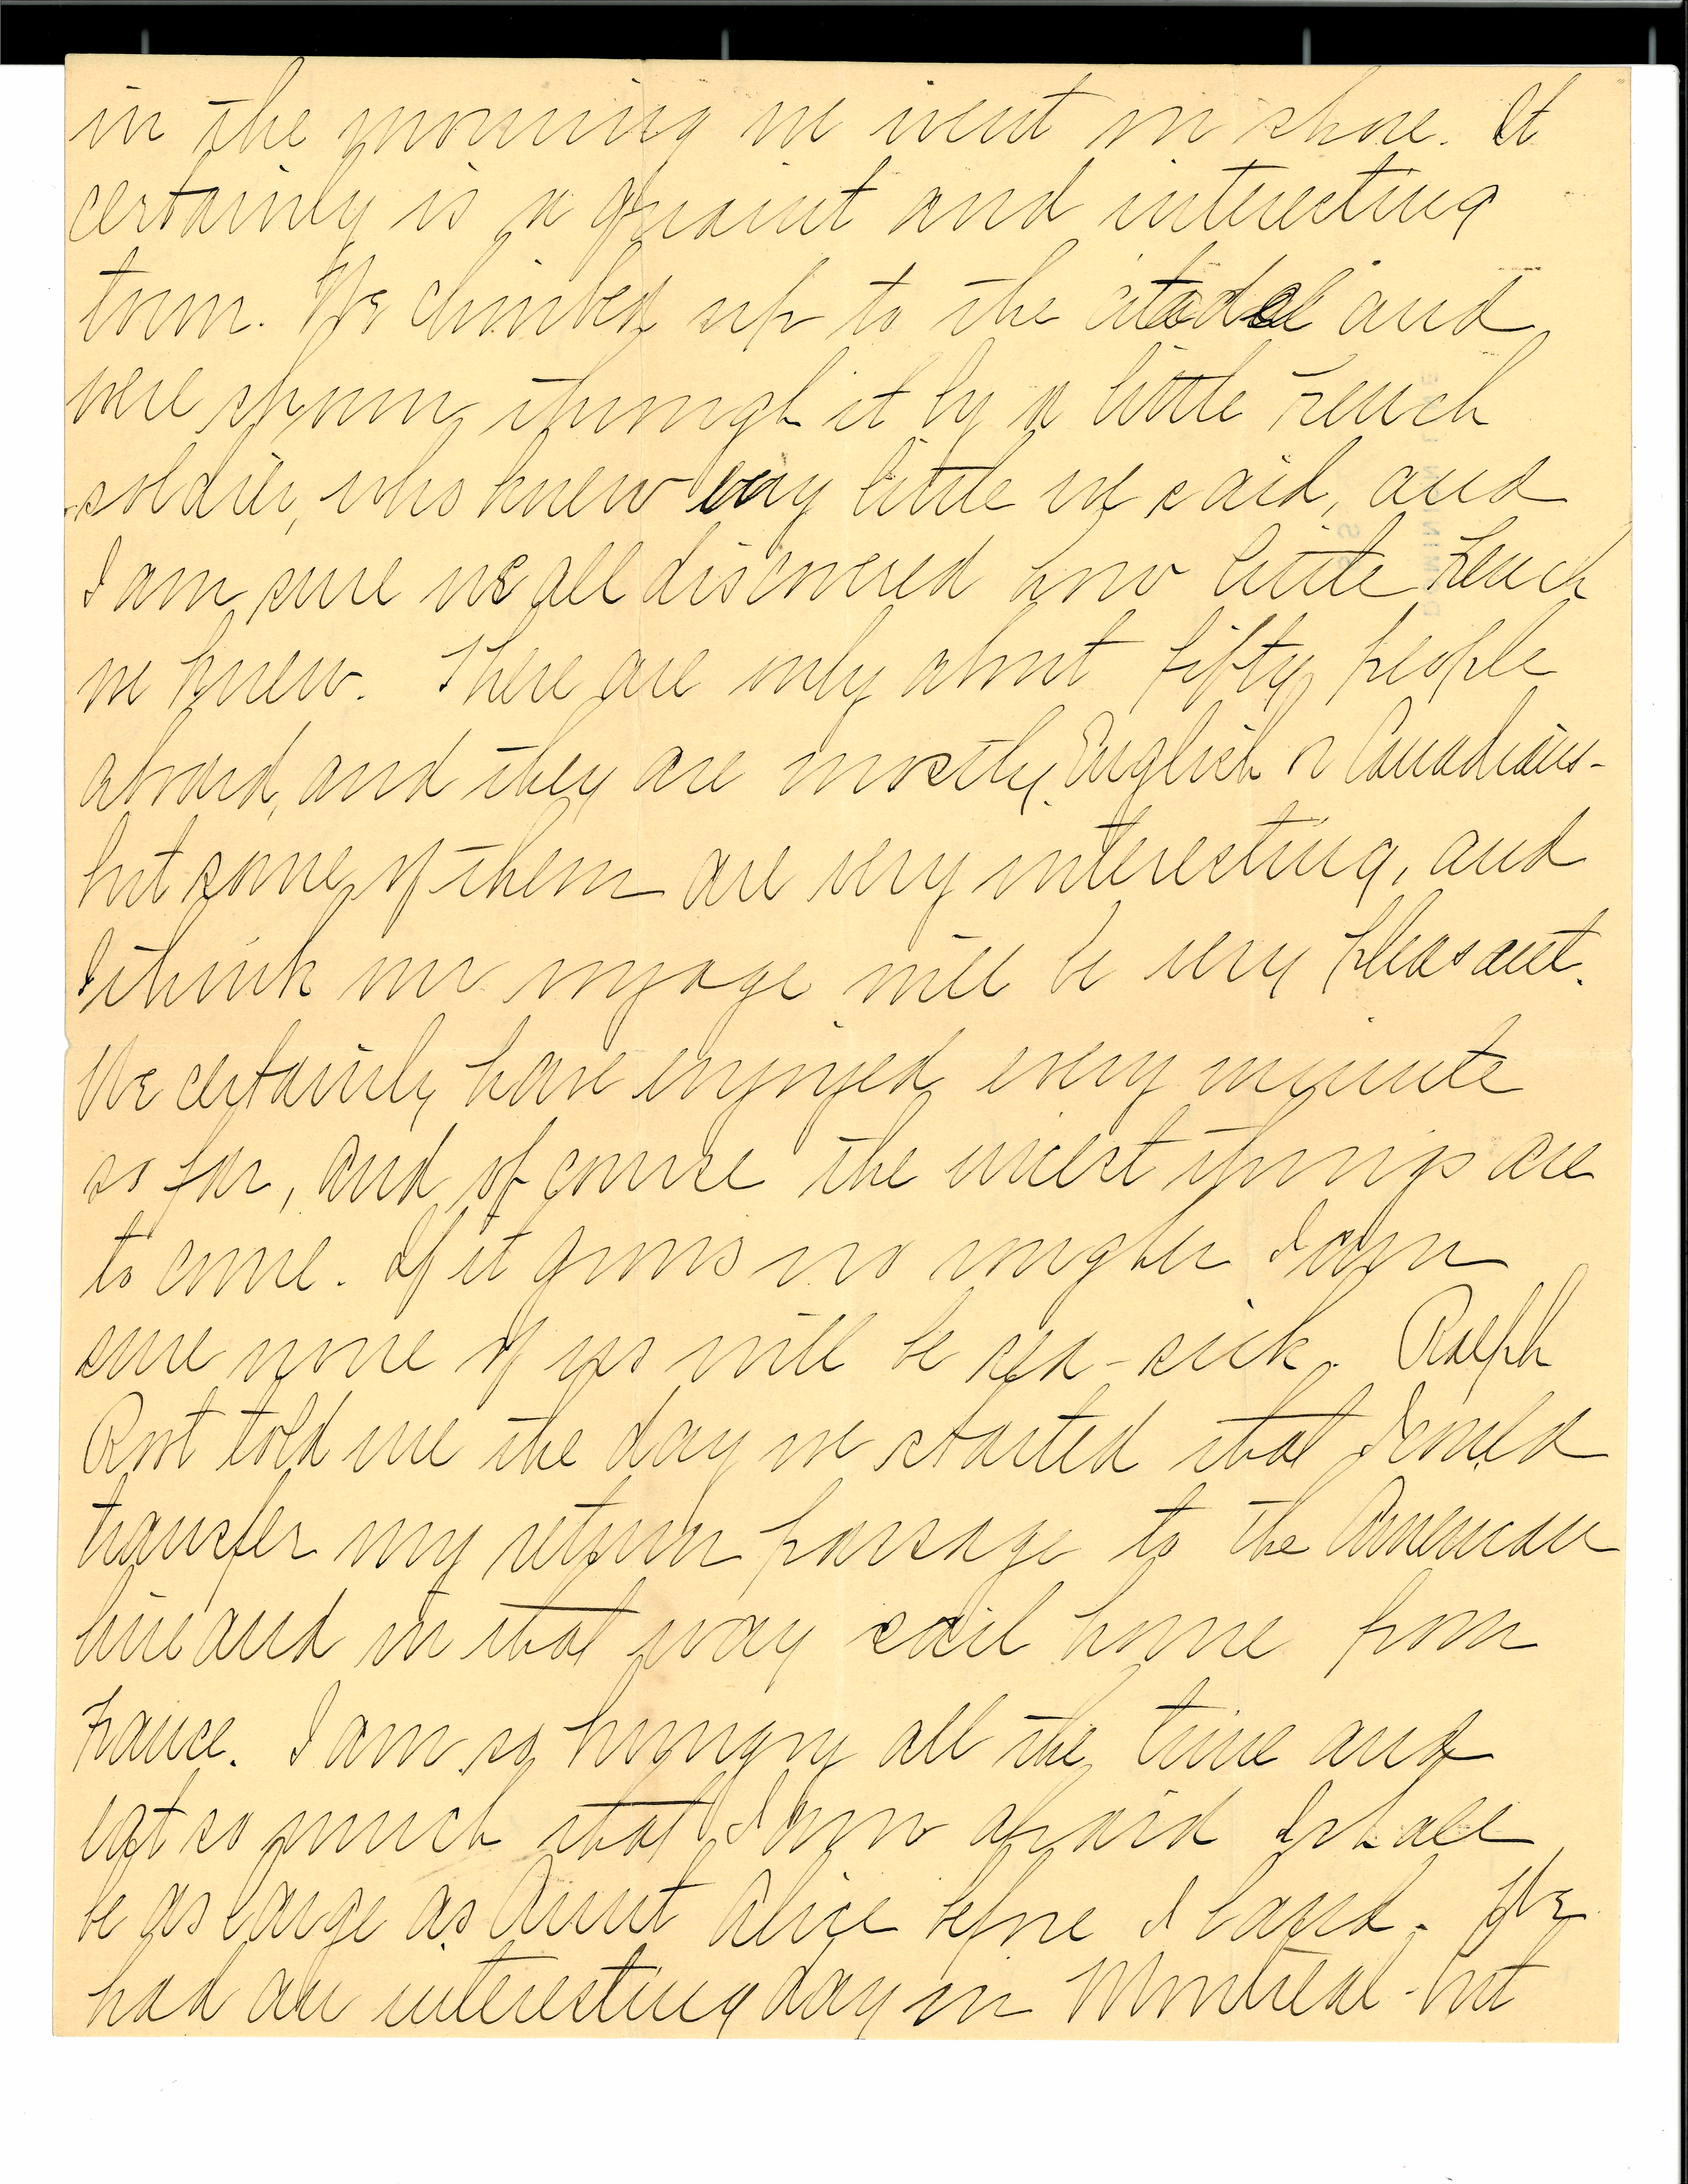 in the morning we went on shore. It
certainly is a quaint and interesting
town. We climbed up to the citadel and
were shown through it by a little French
soldier, who knew very little we said, and
I am sure we all discovered how little French
we knew. There are only about fifty people
aboard, and they are mostly English or Canadians-
but some of them are very interesting, and
I think our voyage will be very pleasant.
We certainly have enjoyed every minute
so far, and of course the nicest things are
to come. If it grows no rougher I am
sure none of us will be sea-sick. Ralph
Root told me the day we started that I could
transfer my return passage to the American
line and in that way sail home from
France. I am so hungry all the time and
eat so much that I am afraid I shall
be as large as Aunt Alice before I land. We
had an interesting day in Montreal - but